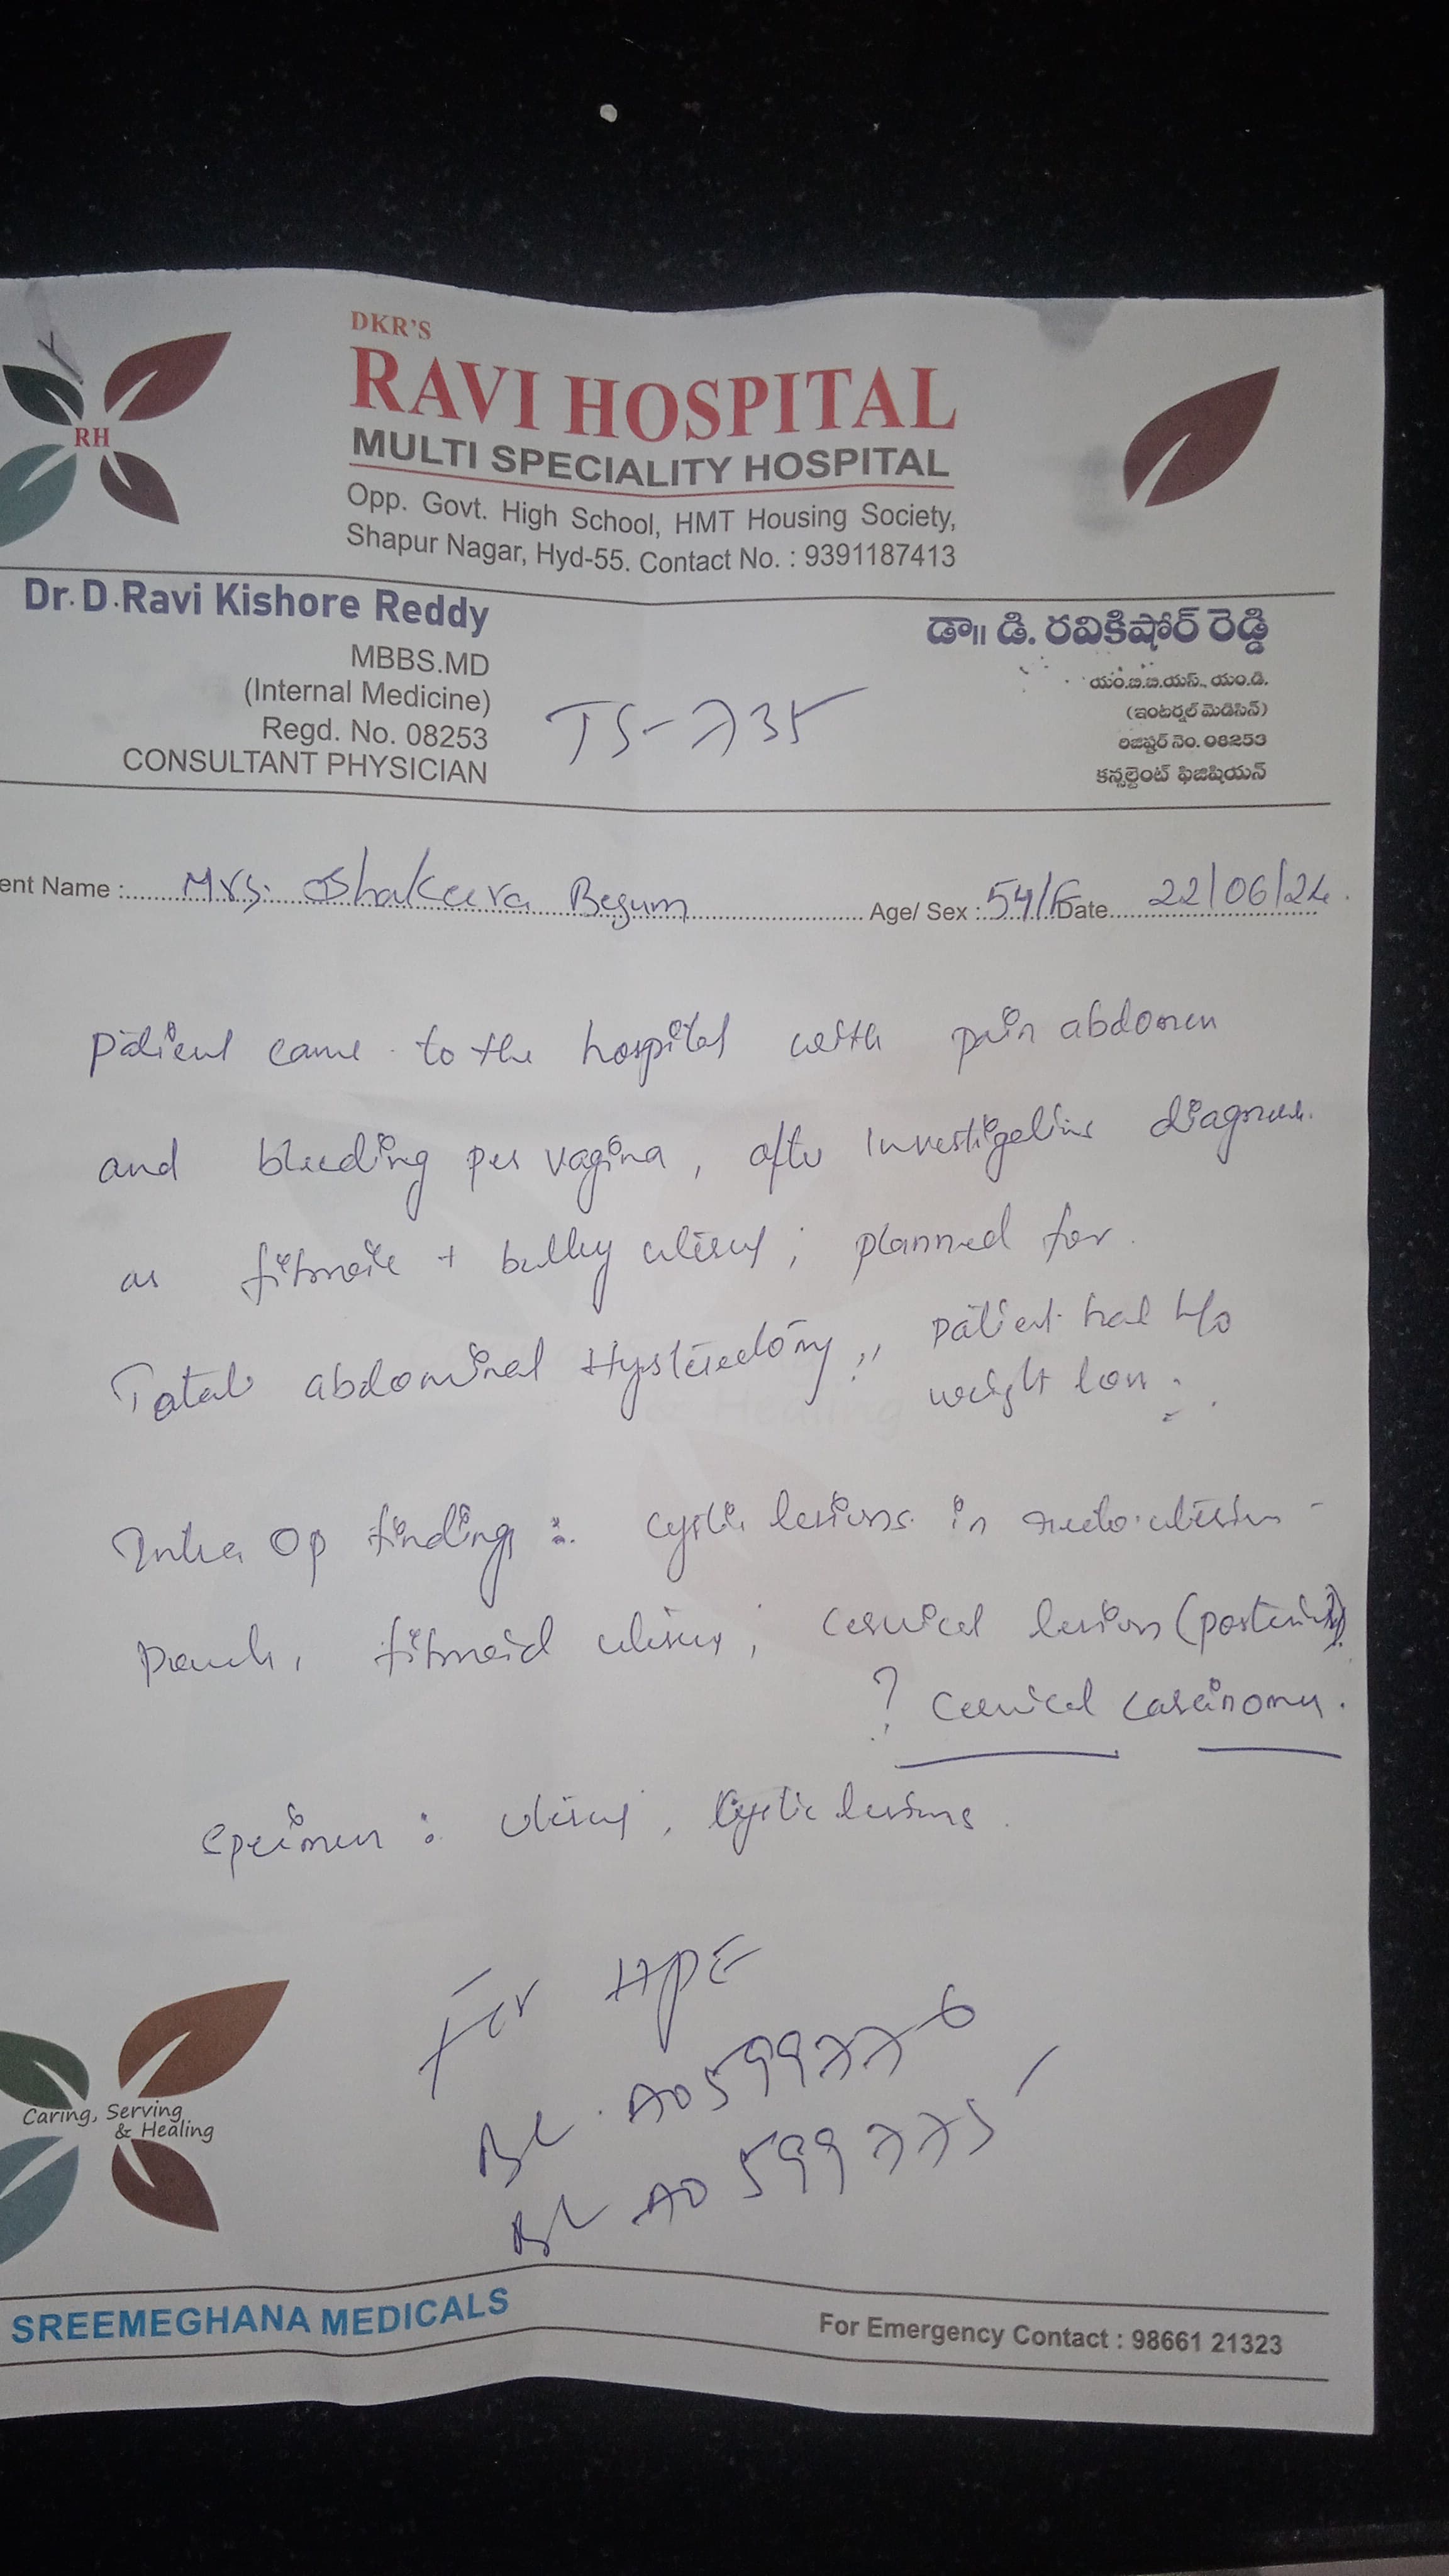 DKR'S
RAVI HOSPITAL
MULTI SPECIALITY HOSPITAL
Opp. Govt. High School, HMT Housing Society,
Shapur Nagar, Hyd-55. Contact No. : 9391187413
RH
Dr. D.Ravi Kishore Reddy
MBBS.MD
(Internal Medicine)
Regd. No. 08253
CONSULTANT PHYSICIAN
TS-735
డా॥ డి. రవికిషోర్ రెడ్డి
యం.బి.బి.యస్., యం.డి.
(ఇంటర్నల్ మెడిసిన్)
రిజిష్టర్ నెం. 08253
కన్సల్టెంట్ ఫిజిషియన్
ent Name : Mrs. Shakeera Begum Age/ Sex : 54/F Date 22/06/24
Patient came to the hospital with pain abdomen
and bleeding per vagina, after Investigations
as fibroid + bulky uterus; planned for
Total abdominal Hysterectomy, Patient had H/o
weight loss.
Intra Op findings : Cystic lesions in recto-uterine
pouch, fibroid uterus; cervical lesion (posterior)
? Cervical carcinoma.
Specimen : Uterus, Cystic lesions
For HPE
BL. A0599776
BL A0599775
Caring, Serving
& Healing
SREEMEGHANA MEDICALS
For Emergency Contact : 98661 21323